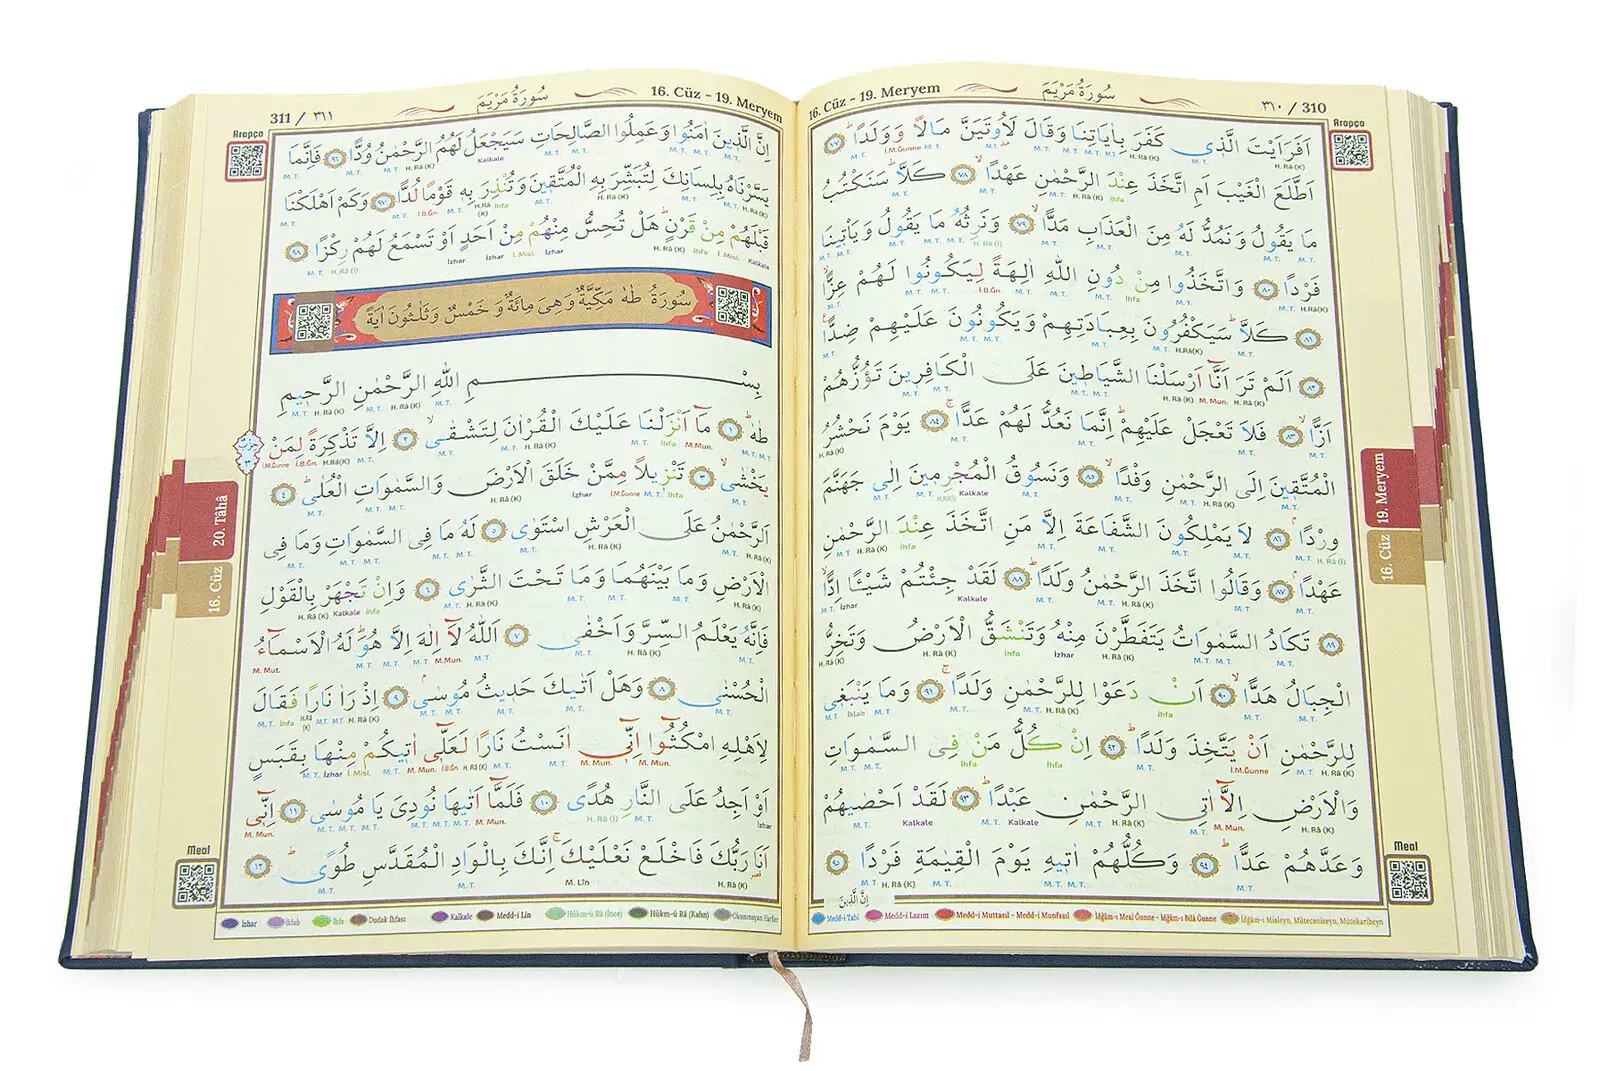 16. Cüz - 19. Meryem
سُورَةُ مَرْيَمَ
٣١٠ / 310
Arapça
اَفَرَاَيْتَ الَّذ۪ي كَفَرَ بِاٰيَاتِنَا وَقَالَ لَاُو۫تَيَنَّ مَالًا وَوَلَدًاۜ ﴿٧٧﴾
اَطَّلَعَ الْغَيْبَ اَمِ اتَّخَذَ عِنْدَ الرَّحْمٰنِ عَهْدًاۙ ﴿٧٨﴾ كَلَّاۜ سَنَكْتُبُ
مَا يَقُولُ وَنَمُدُّ لَهُ مِنَ الْعَذَابِ مَدًّاۙ ﴿٧٩﴾ وَنَرِثُهُ مَا يَقُولُ وَيَأْت۪ينَا
فَرْدًا ﴿٨٠﴾ وَاتَّخَذُوا مِنْ دُونِ اللّٰهِ اٰلِهَةً لِيَكُونُوا لَهُمْ عِزًّاۙ
﴿٨١﴾ كَلَّاۜ سَيَكْفُرُونَ بِعِبَادَتِهِمْ وَيَكُونُونَ عَلَيْهِمْ ضِدًّا۟
﴿٨٢﴾ اَلَمْ تَرَ اَنَّٓا اَرْسَلْنَا الشَّيَاط۪ينَ عَلَى الْكَافِر۪ينَ تَؤُزُّهُمْ
اَزًّاۙ ﴿٨٣﴾ فَلَا تَعْجَلْ عَلَيْهِمْۜ اِنَّمَا نَعُدُّ لَهُمْ عَدًّاۚ ﴿٨٤﴾ يَوْمَ نَحْشُرُ
الْمُتَّق۪ينَ اِلَى الرَّحْمٰنِ وَفْدًاۙ ﴿٨٥﴾ وَنَسُوقُ الْمُجْرِم۪ينَ اِلٰى جَهَنَّمَ
وِرْدًاۢ ﴿٨٦﴾ لَا يَمْلِكُونَ الشَّفَاعَةَ اِلَّا مَنِ اتَّخَذَ عِنْدَ الرَّحْمٰنِ
عَهْدًاۢ ﴿٨٧﴾ وَقَالُوا اتَّخَذَ الرَّحْمٰنُ وَلَدًاۜ ﴿٨٨﴾ لَقَدْ جِئْتُمْ شَيْـًٔا اِدًّاۙ
﴿٨٩﴾ تَكَادُ السَّمٰوَاتُ يَتَفَطَّرْنَ مِنْهُ وَتَنْشَقُّ الْاَرْضُ وَتَخِرُّ
الْجِبَالُ هَدًّاۙ ﴿٩٠﴾ اَنْ دَعَوْا لِلرَّحْمٰنِ وَلَدًاۚ ﴿٩١﴾ وَمَا يَنْبَغ۪ي
لِلرَّحْمٰنِ اَنْ يَتَّخِذَ وَلَدًاۜ ﴿٩٢﴾ اِنْ كُلُّ مَنْ فِي السَّمٰوَاتِ
وَالْاَرْضِ اِلَّٓا اٰتِي الرَّحْمٰنِ عَبْدًاۜ ﴿٩٣﴾ لَقَدْ اَحْصٰيهُمْ
وَعَدَّهُمْ عَدًّاۜ ﴿٩٤﴾ وَكُلُّهُمْ اٰت۪يهِ يَوْمَ الْقِيٰمَةِ فَرْدًا ﴿٩٥﴾
اِنَّ الَّذ۪ينَ
19. Meryem
16. Cüz
Meal
Medd-i Tabî Medd-i Lazım Medd-i Muttasıl - Medd-i Munfasıl İdğam-ı Meal Ğunne - İdğam-ı Bilâ Ğunne İdğam-ı Misleyn, Mütecaniseyn, Mütekaribeyn
16. Cüz - 19. Meryem
سُورَةُ مَرْيَمَ
311 / ٣١١
Arapça
اِنَّ الَّذ۪ينَ اٰمَنُوا وَعَمِلُوا الصَّالِحَاتِ سَيَجْعَلُ لَهُمُ الرَّحْمٰنُ وُدًّا ﴿٩٦﴾ فَاِنَّمَا
يَسَّرْنَاهُ بِلِسَانِكَ لِتُبَشِّرَ بِهِ الْمُتَّق۪ينَ وَتُنْذِرَ بِه۪ قَوْمًا لُدًّا ﴿٩٧﴾ وَكَمْ اَهْلَكْنَا
قَبْلَهُمْ مِنْ قَرْنٍۜ هَلْ تُحِسُّ مِنْهُمْ مِنْ اَحَدٍ اَوْ تَسْمَعُ لَهُمْ رِكْزًا ﴿٩٨﴾
سُورَةُ طٰهٰ مَكِّيَّةٌ وَهِيَ مِائَةٌ وَ خَمْسٌ وَثَلٰثُونَ اٰيَةً
بِسْمِ اللّٰهِ الرَّحْمٰنِ الرَّح۪يمِ
طٰهٰۜ ﴿١﴾ مَٓا اَنْزَلْنَا عَلَيْكَ الْقُرْاٰنَ لِتَشْقٰىۙ ﴿٢﴾ اِلَّا تَذْكِرَةً لِمَنْ
يَخْشٰىۙ ﴿٣﴾ تَنْز۪يلًا مِمَّنْ خَلَقَ الْاَرْضَ وَالسَّمٰوَاتِ الْعُلٰىۜ ﴿٤﴾
اَلرَّحْمٰنُ عَلَى الْعَرْشِ اسْتَوٰى ﴿٥﴾ لَهُ مَا فِي السَّمٰوَاتِ وَمَا فِي
الْاَرْضِ وَمَا بَيْنَهُمَا وَمَا تَحْتَ الثَّرٰى ﴿٦﴾ وَاِنْ تَجْهَرْ بِالْقَوْلِ
فَاِنَّهُ يَعْلَمُ السِّرَّ وَاَخْفٰى ﴿٧﴾ اَللّٰهُ لَٓا اِلٰهَ اِلَّا هُوَۜ لَهُ الْاَسْمَٓاءُ
الْحُسْنٰى ﴿٨﴾ وَهَلْ اَتٰيكَ حَد۪يثُ مُوسٰىۢ ﴿٩﴾ اِذْ رَاٰ نَارًا فَقَالَ
لِاَهْلِهِ امْكُثُٓوا اِنّ۪ٓي اٰنَسْتُ نَارًا لَعَلّ۪ٓي اٰت۪يكُمْ مِنْهَا بِقَبَسٍ
اَوْ اَجِدُ عَلَى النَّارِ هُدًى ﴿١٠﴾ فَلَمَّٓا اَتٰيهَا نُودِيَ يَا مُوسٰى ﴿١١﴾ اِنّ۪ٓي
اَنَا۬ رَبُّكَ فَاخْلَعْ نَعْلَيْكَۚ اِنَّكَ بِالْوَادِ الْمُقَدَّسِ طُوًىۜ ﴿١٢﴾
20. Tâhâ
16. Cüz
Meal
İzhar İklab İhfa Dudak İhfası Kalkale Medd-i Lîn Hükm-ü Râ (İnce) Hükm-ü Râ (Kalın) Okunmayan Harfler